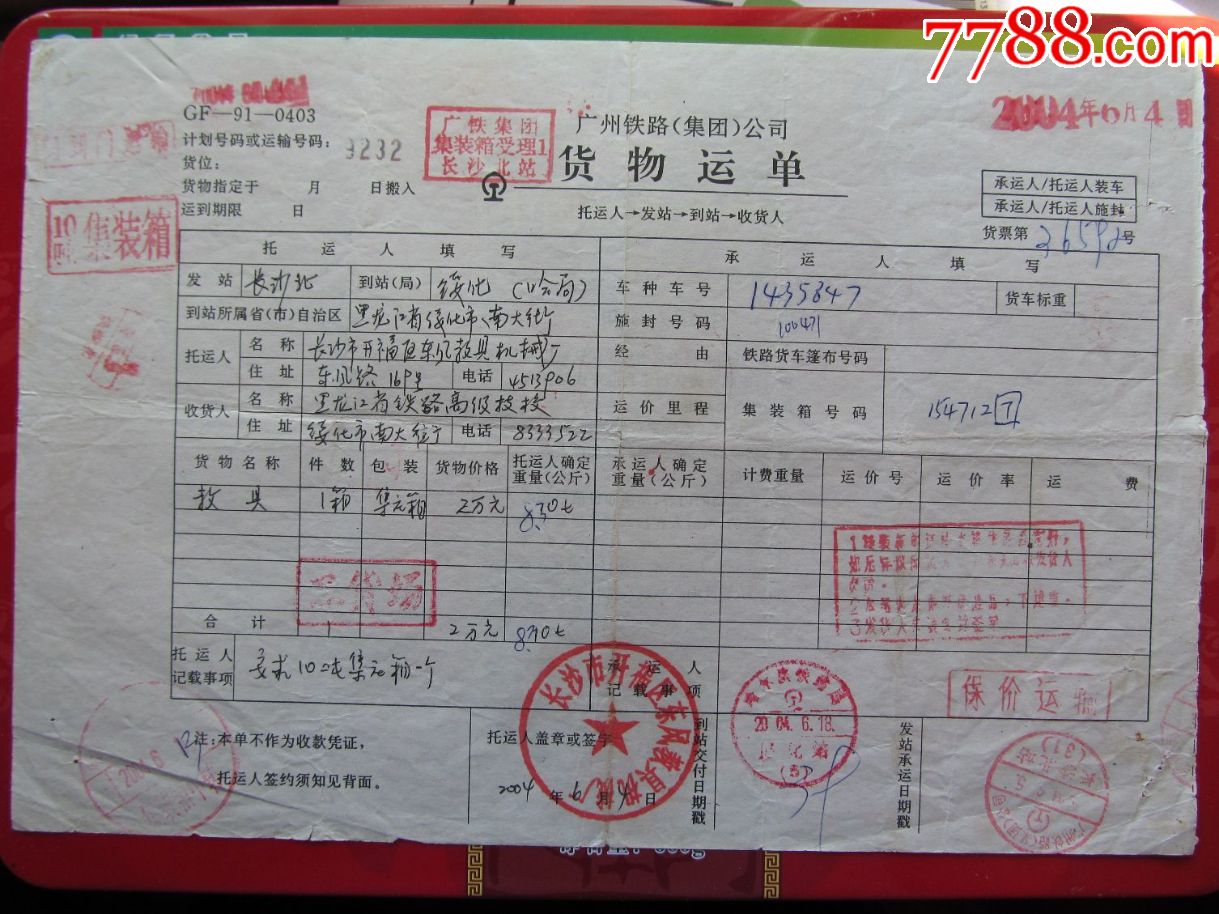 7788.com
2004年6月4日
GF—91—0403
广州铁路(集团)公司
货物运单
广铁集团
集装箱受理1
长沙北站
计划号码或运输号码：
9232
货位：
货物指定于 月 日搬入
运到期限 日
托运人→发站→到站→收货人
承运人/托运人装车
承运人/托运人施封
货票第 号
10吨 集装箱
托运人填写
承运人填写
发站 长沙北 到站(局) 绥化 (哈局)
车种车号 1435847 货车标重
到站所属省(市)自治区 黑龙江省绥化市南大街
施封号码 100471
托运人 名称 长沙市开福区东风教具机械厂
经由 铁路货车篷布号码
住址 东风路169号 电话 4513906
收货人 名称 黑龙江省铁路高级技校
运价里程 集装箱号码 154712 7
住址 绥化市南大街 电话 8333522
货物名称 件数 包装 货物价格 托运人确定重量(公斤) 承运人确定重量(公斤) 计费重量 运价号 运价率 运费
教具 1箱 集装箱 2万元 8.30t
合计 2万元 8.30t
托运人记载事项 要求10吨集装箱一个
承运人记载事项
保价运输
注：本单不作为收款凭证，
托运人签约须知见背面。
托运人盖章或签字
2004年6月4日
长沙市开福区东风教具机械厂
到站交付日期戳
2004.6.18.
(5)
发站承运日期戳
长沙北站
(31)
2004.6